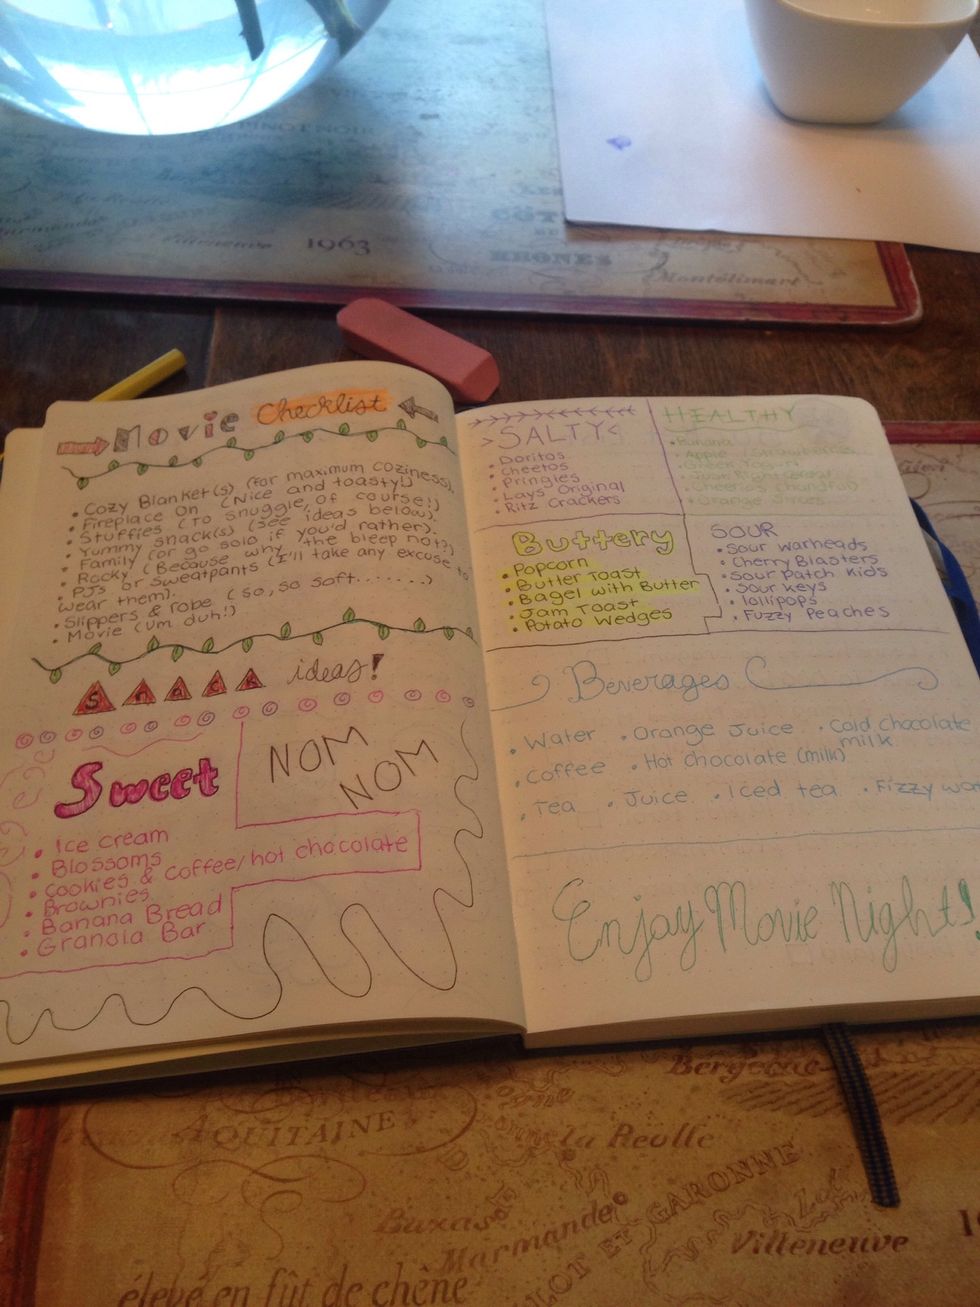 PINOT NOIR
1963
CÔT
RHONES
Montélimart
Movie Checklist
• Cozy Blanket(s) (for maximum coziness).
• Fireplace on (Nice and toasty!)
• Stuffies (To snuggle, of course!)
• Yummy snack(s) (see ideas below).
• Family (or go solo if you'd rather).
• Rocky (Because why the bleep not?)
• PJs or sweatpants (I'll take any excuse to
wear them).
• Slippers & robe (so, so soft.......)
• Movie (um duh!)
Snack ideas!
Sweet
NOM
NOM
• Ice cream
• Blossoms
• Cookies & coffee/hot chocolate
• Brownies
• Banana Bread
• Granola Bar
>SALTY<
• Doritos
• Cheetos
• Pringles
• Lays Original
• Ritz Crackers
HEALTHY
• Banana
• Apple Strawberries
• Greek Yogurt
• Orange Slices
Buttery
• Popcorn
• Butter Toast
• Bagel with Butter
• Jam Toast
• Potato Wedges
SOUR
• Sour Warheads
• Cherry Blasters
• Sour Patch Kids
• Sour Keys
• lollipops
• Fuzzy Peaches
Beverages
• Water • Orange Juice • Cold chocolate
milk
• Coffee • Hot chocolate (milk)
• Tea • Juice • Iced tea • Fizzy wa
Enjoy Movie Night!
Bergerac
AQUITAINE
la Reolle
Marmande
LOT ET GARONNE
Villeneuve
élevé en fût de chêne